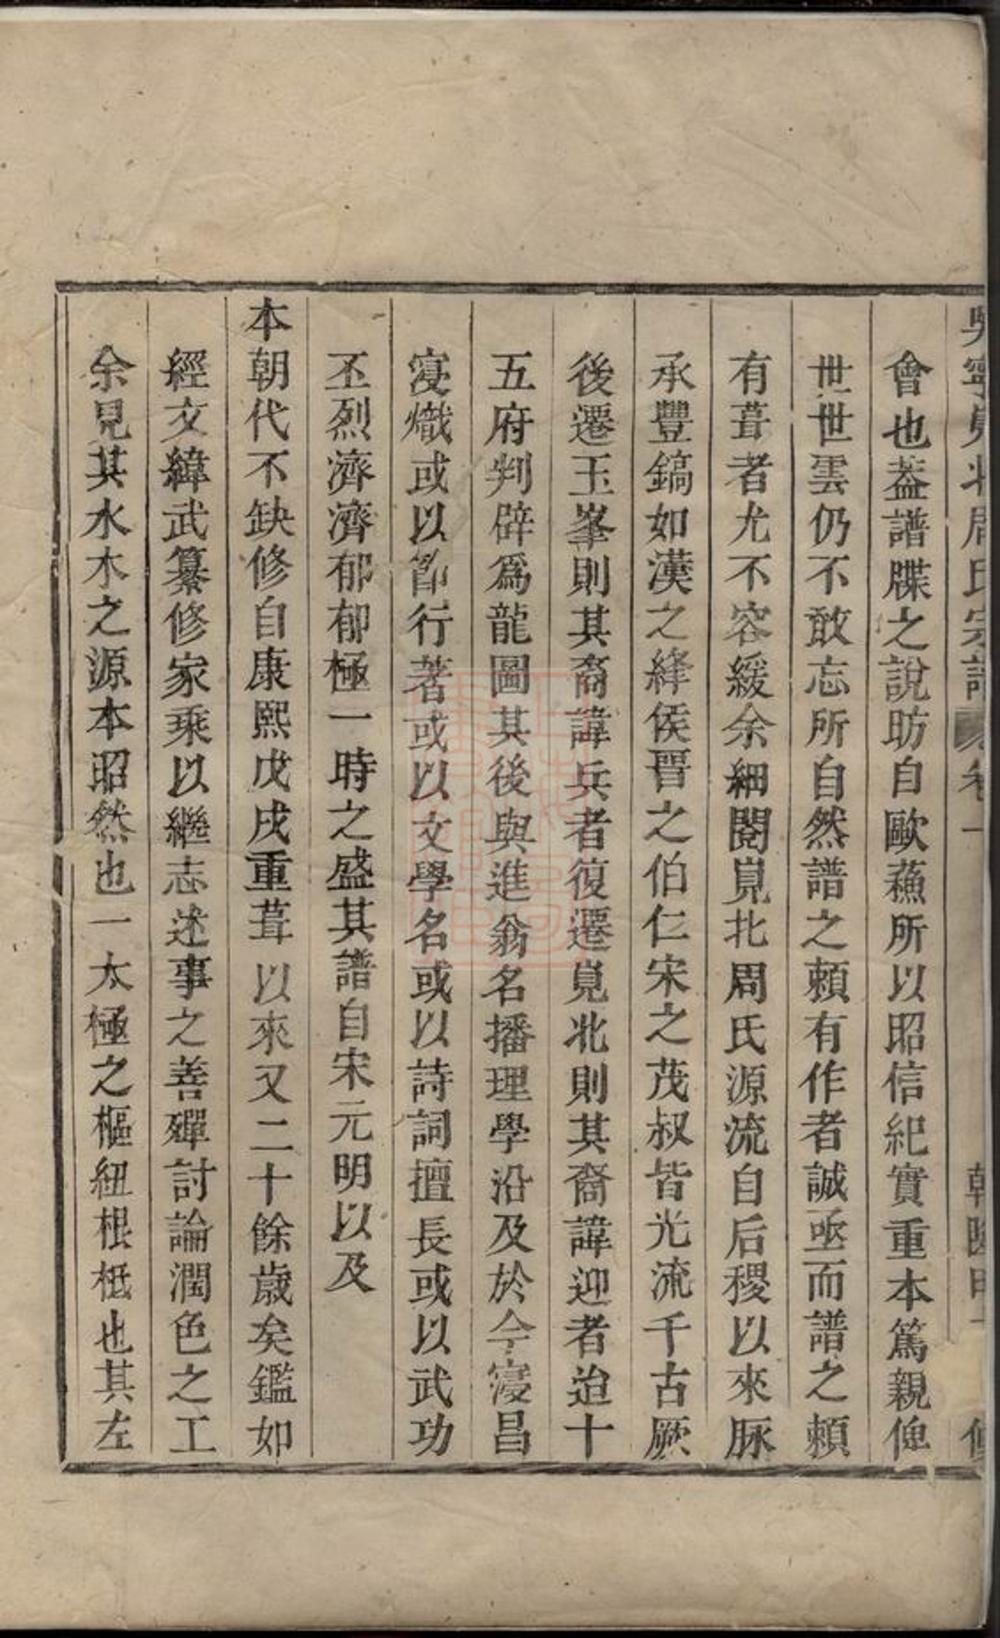 吳寧
周氏宗譜
卷一
會也葢譜牒之說昉自歐蘓所以昭信紀實重本篤親俾
世世雲仍不敢忘所自然譜之頼有作者誠亟而譜之頼
有葺者尤不容緩余細閱峴北周氏源流自后稷以來脉
承豐鎬如漢之絳侯晋之伯仁宋之茂叔皆光流千古厥
後遷玉峯則其裔諱兵者復遷峴北則其裔諱迎者迨十
五府判辟爲龍圖其後與進翁名播理學沿及於今寖昌
寖熾或以節行著或以文學名或以詩詞擅長或以武功
丕烈濟濟郁郁極一時之盛其譜自宋元明以及
本朝代不缺修自康熙戊戌重葺以來又二十餘歲矣鑑如
經文緯武纂修家乘以繼志述事之善殫討論潤色之工
余見其水木之源本昭然也一太極之樞紐根柢也其左